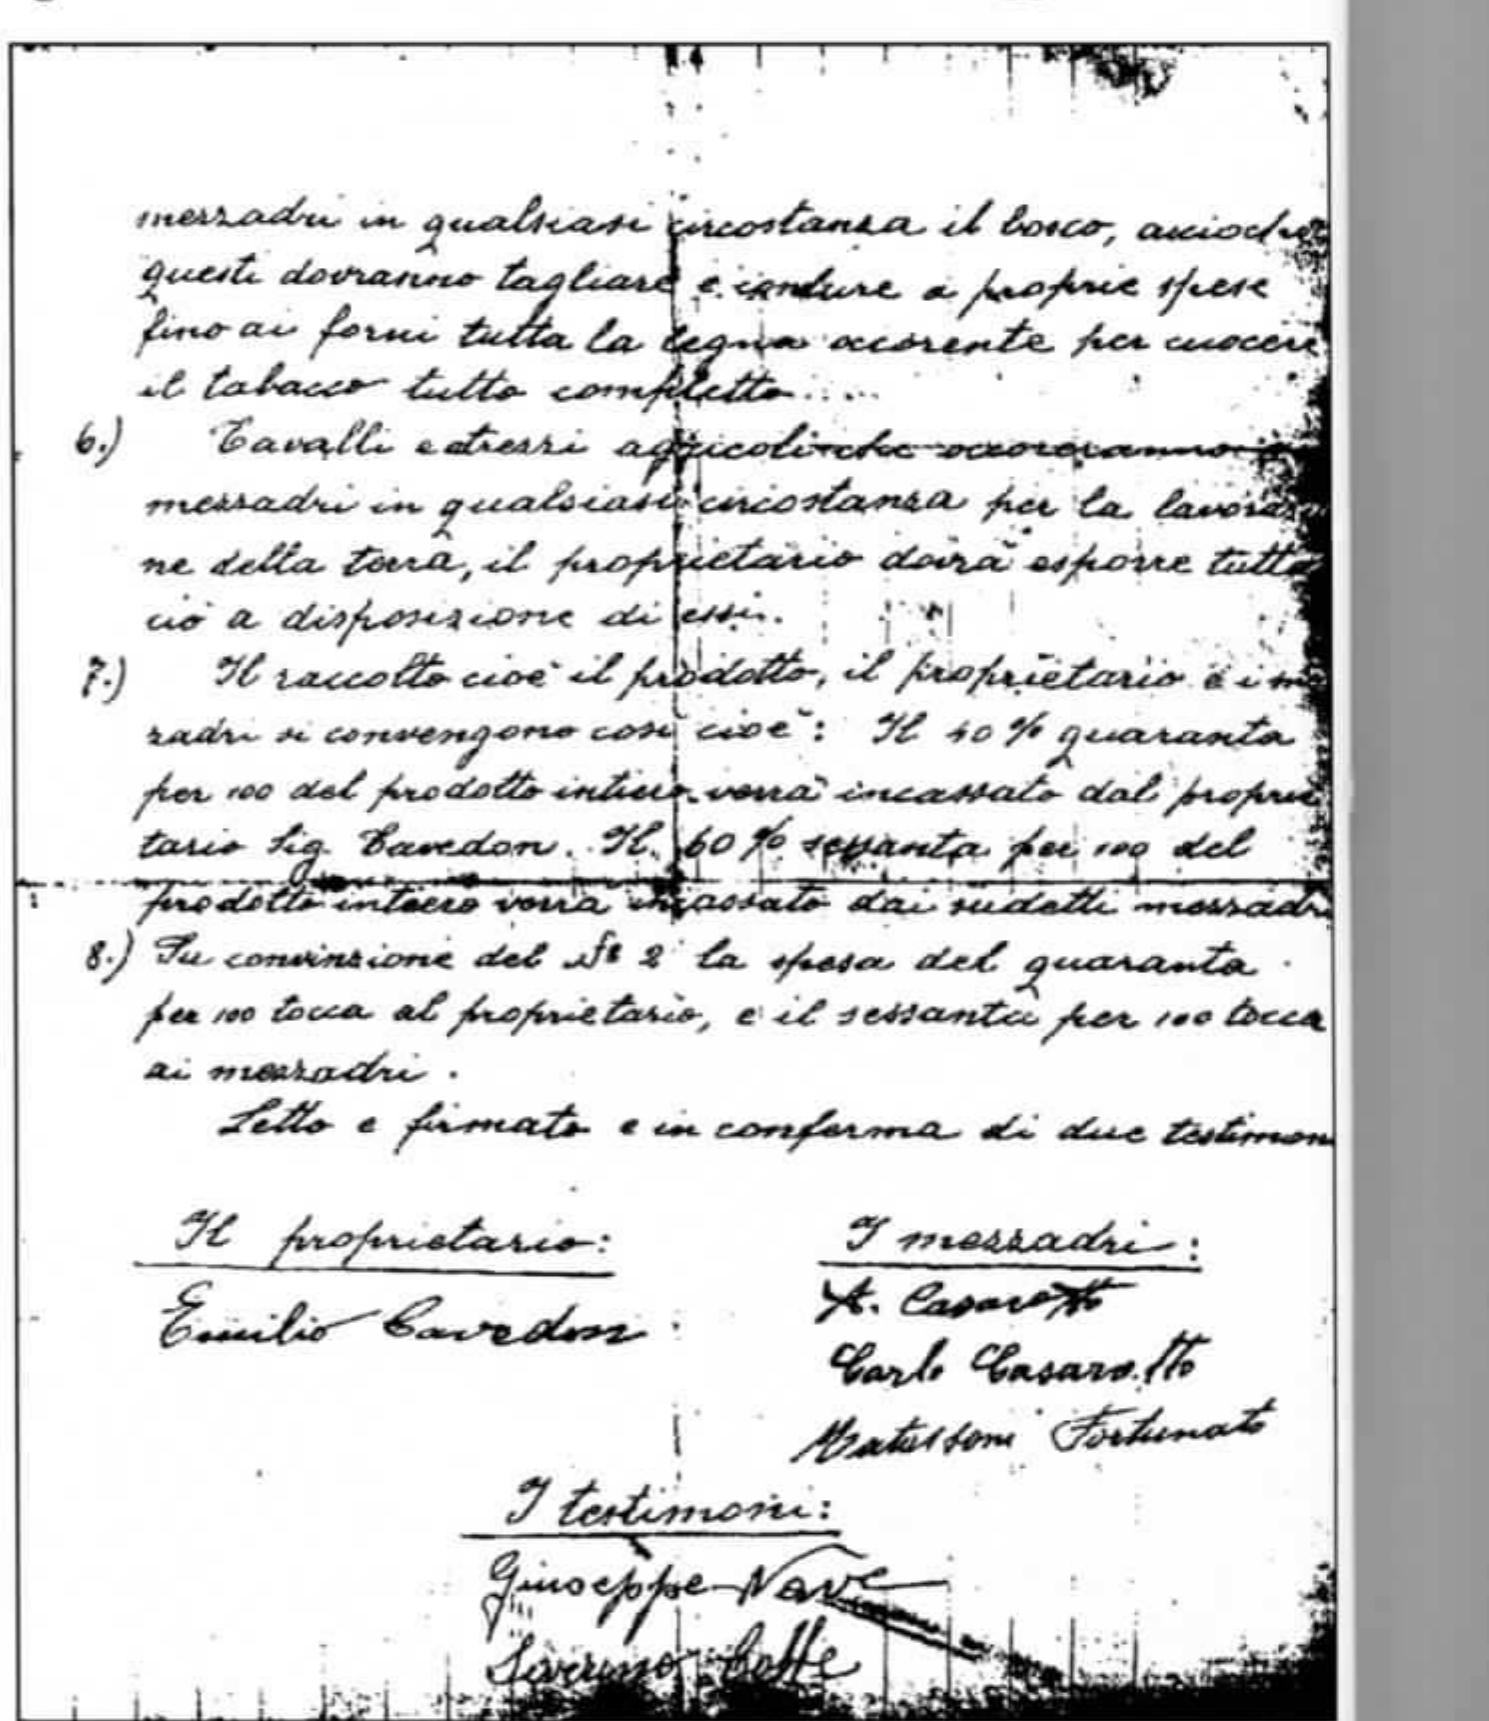 mezzadri in qualsiasi circostanza il bosco, acciochè
questi dovranno tagliare e condure a proprie spese
fino ai forni tutta la legna occorente per cuocere
il tabacco tutto completto....
6.) Cavalli e atrezzi agricoli che occoreranno
mezzadri in qualsiasi circostanza per la lavorazio
ne della terra, il proprietario dovrà esporre tutto
ciò a disposizione di essi.
7.) Il raccolto cioè il prodotto, il proprietario e i mez
zadri si convengono così cioè: Il 40% quaranta
per 100 del prodotto intiero verrà incassato dal proprie
tario Sig. Cavedon. Il 60% sessanta per 100 del
prodotto intiero verrà incassato dai sudetti mezzadri
8.) Su convinzione del № 2 la spesa del quaranta
per 100 tocca al proprietario, e il sessanta per 100 tocca
ai mezzadri.
Letto e firmato e in conferma di due testimon
Il proprietario: I mezzadri:
Emilio Cavedon A. Casarotto
Carlo Casarotto
Fortunato
I testimoni:
Giuseppe Nave
Severino